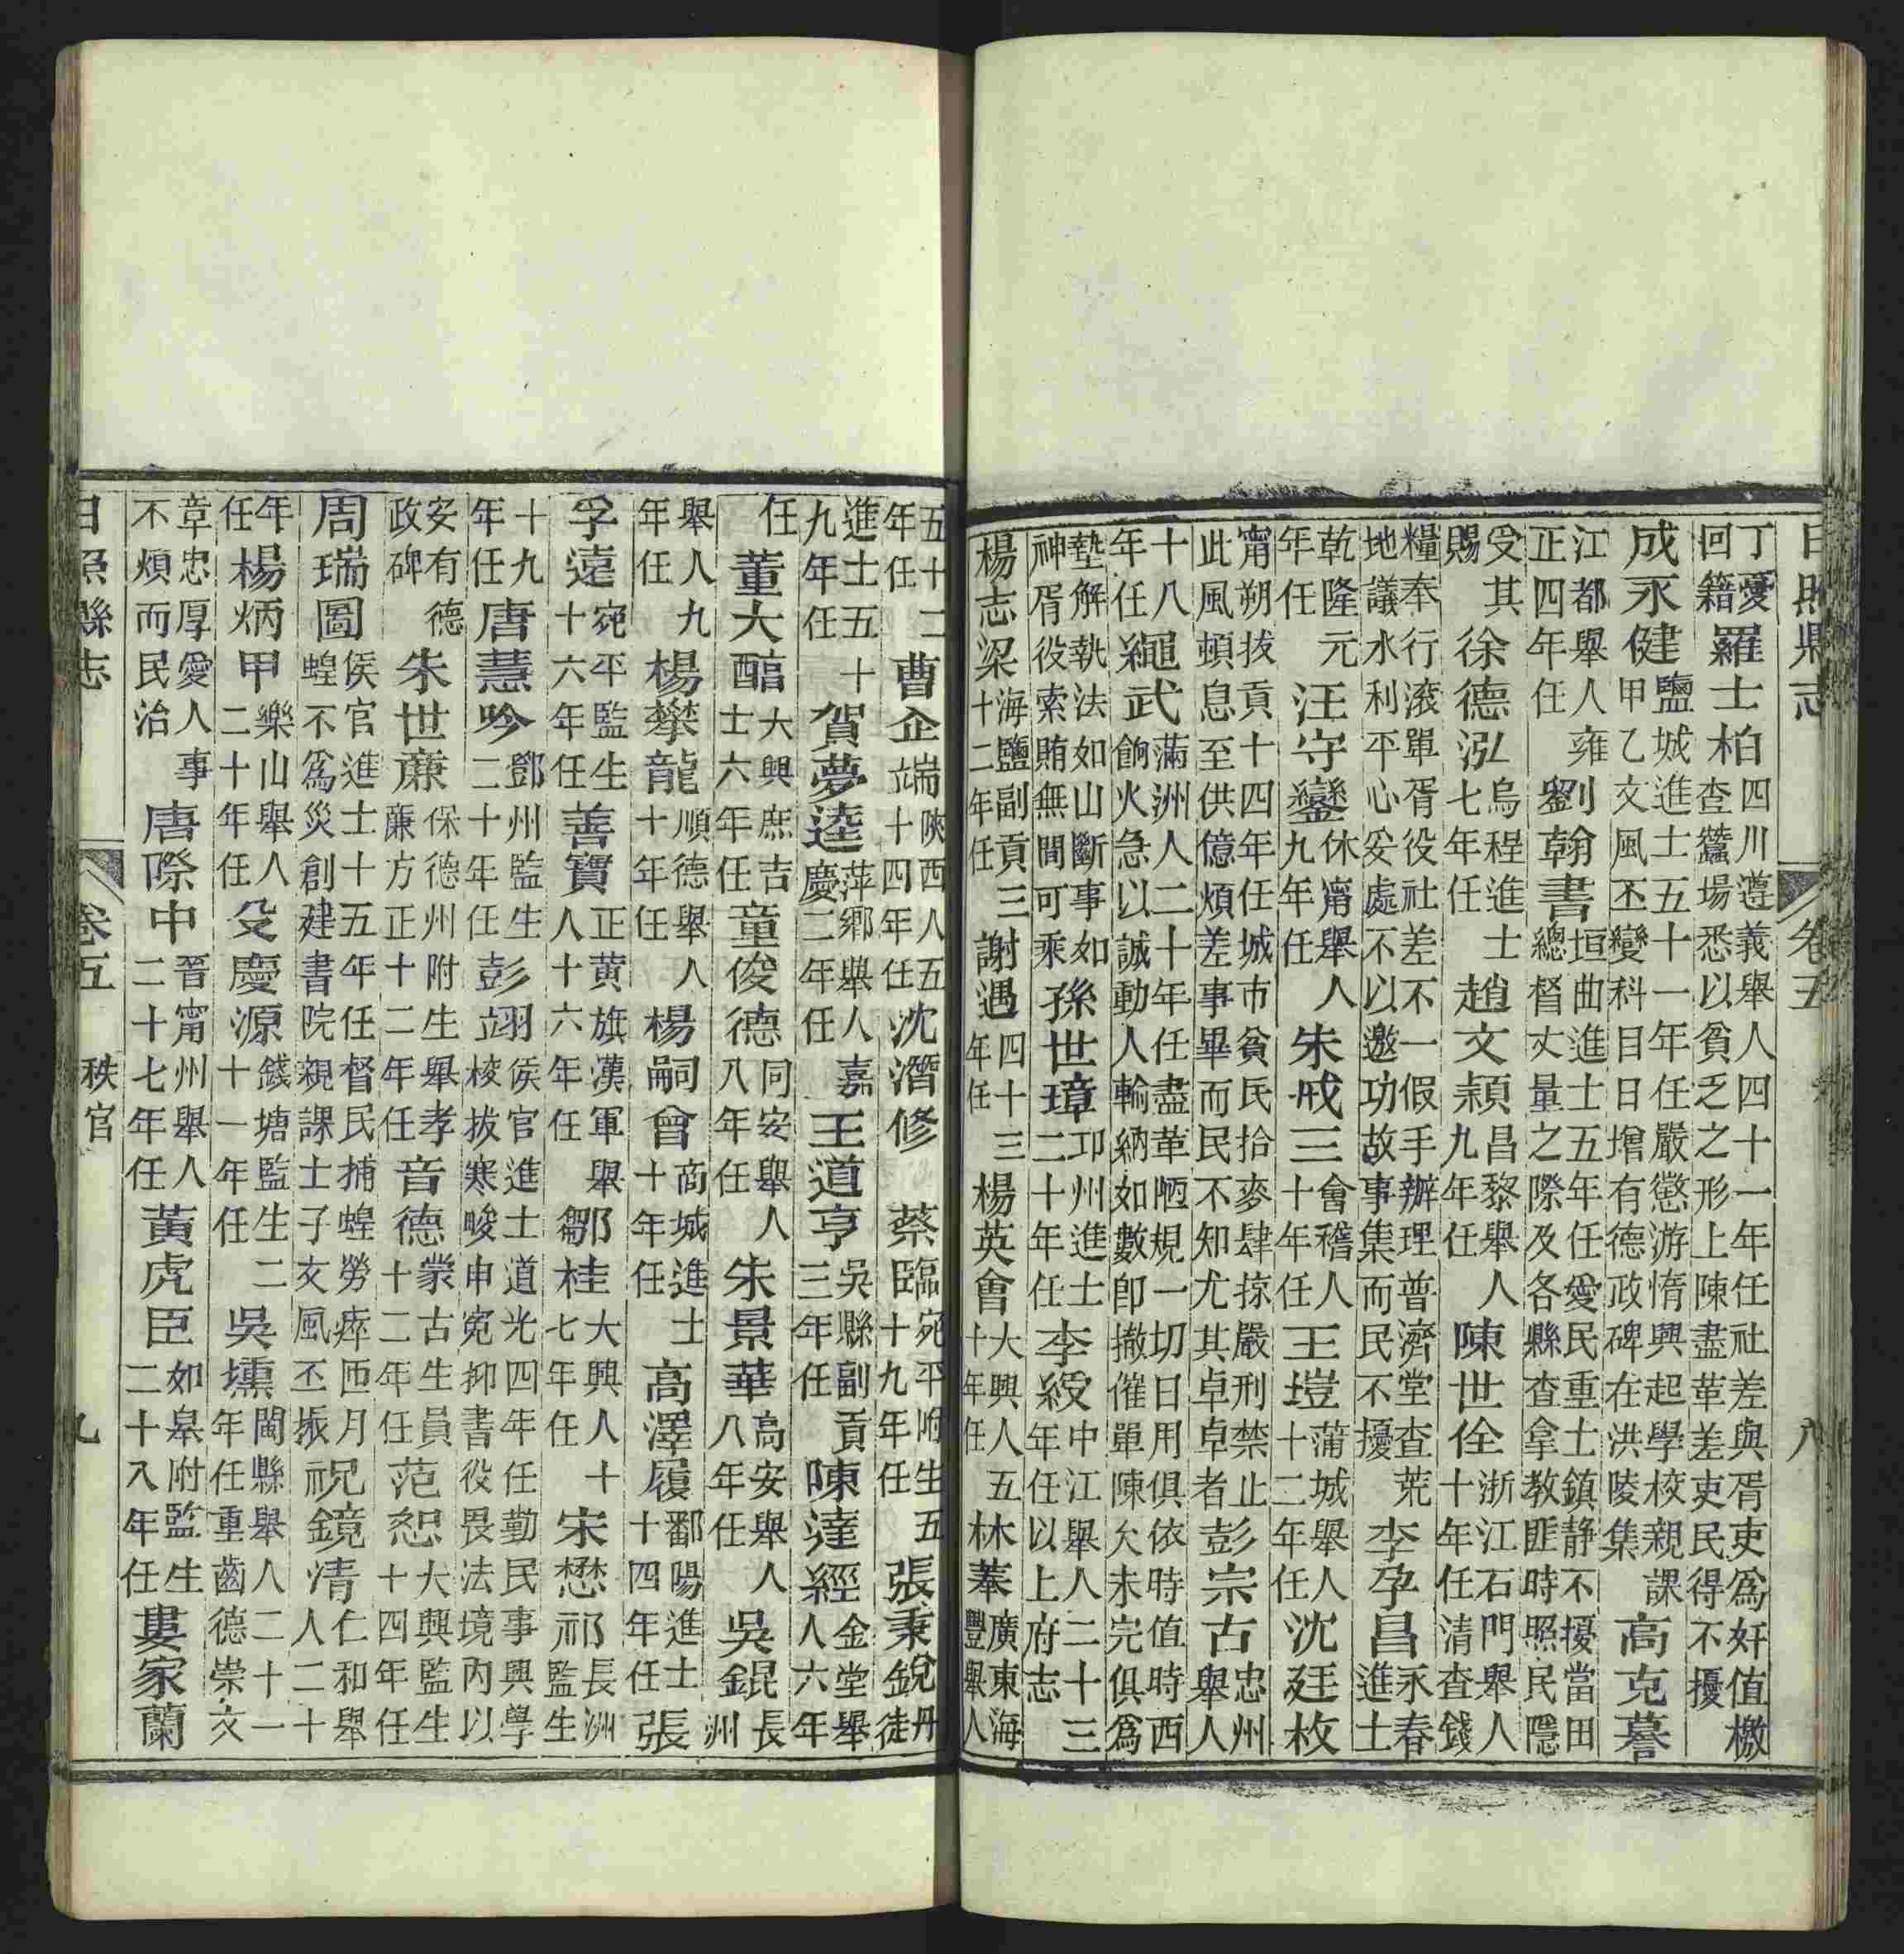 日照縣志 卷五 八
丁憂回籍羅士柏四川遵義舉人四十一年任社差與胥吏爲奸值檄查蠶場悉以貧乏之形上陳盡革差吏民得不擾
成永健鹽城進士五十一年任嚴懲游惰興起學校親課甲乙文風丕變科目日增有德政碑在洪陵集高克謩
江都舉人雍正四年任劉翰書垣曲進士五年任愛民重士鎮静不擾當田總督丈量之際及各縣查拿教匪時照民隱
受其賜徐德泓烏程進士七年任趙文潁昌黎舉人九年任陳世佺浙江石門舉人十年任清查錢
糧奉行滚單胥役社差不一假手辦理普濟堂查荒地議水利平心妥處不以邀功故事集而民不擾李孕昌永春進士
乾隆元年任汪守鑾休甯舉人九年任朱戒三會稽人十年任王塏蒲城舉人十二年任沈廷枚
甯朔拔貢十四年任城市貧民拾麥肆掠嚴刑禁止此風頓息至供億煩差事畢而民不知尤其卓卓者彭宗古忠州舉人
十八年任繩武滿洲人二十年任盡革陋規一切日用俱依時值時西餉火急以誠動人輸納如數即撤催單陳欠未完俱爲
墊解執法如山斷事如神胥役索賄無間可乘孫世璋邛州進士二十年任李綬中江舉人二十三年任以上府志
楊志梁海鹽副貢三十二年任謝遇四十三年任楊英會大興人五十年任林蓁廣東海豐舉人
五十二年任曹企端陝西人五十四年任沈潛修 蔡臨宛平附生五十九年任張秉銳丹徒
進士五十九年任賀夢逵萍鄉舉人嘉慶二年任王道亨吳縣副貢三年任陳達經金堂舉人六年
任董大醕大興庶吉士六年任童俊德同安舉人八年任朱景華高安舉人八年任吳錕長洲
舉人九年任楊攀龍順德舉人十年任楊嗣曾商城進士十年任高澤履鄱陽進士十四年任張
孚遠宛平監生十六年任善寶正黄旗漢軍舉人十六年任鄒桂大興人十七年任宋懋祁長洲監生
十九年任唐慧吟鄧州監生二十年任彭翊侯官進士道光四年任勤民事興學棱拔寒畯申寃抑書役畏法境內以
安有德政碑朱世廉保德州附生舉孝廉方正十二年任音德蒙古生員十二年任范恕大興監生十四年任
周瑞圖侯官進士十五年任督民捕蝗勞瘁匝月蝗不爲災創建書院親課士子文風丕振祝鏡清仁和舉人二十
年任楊炳甲樂山舉人二十年任殳慶源錢塘監生二十一年任吳壎閩縣舉人二十一年任重齒德崇文
章忠厚愛人事不煩而民治唐際中晉甯州舉人二十七年任黃虎臣如皋附監生二十八年任婁家蘭
日照縣志 卷五 秩官 九